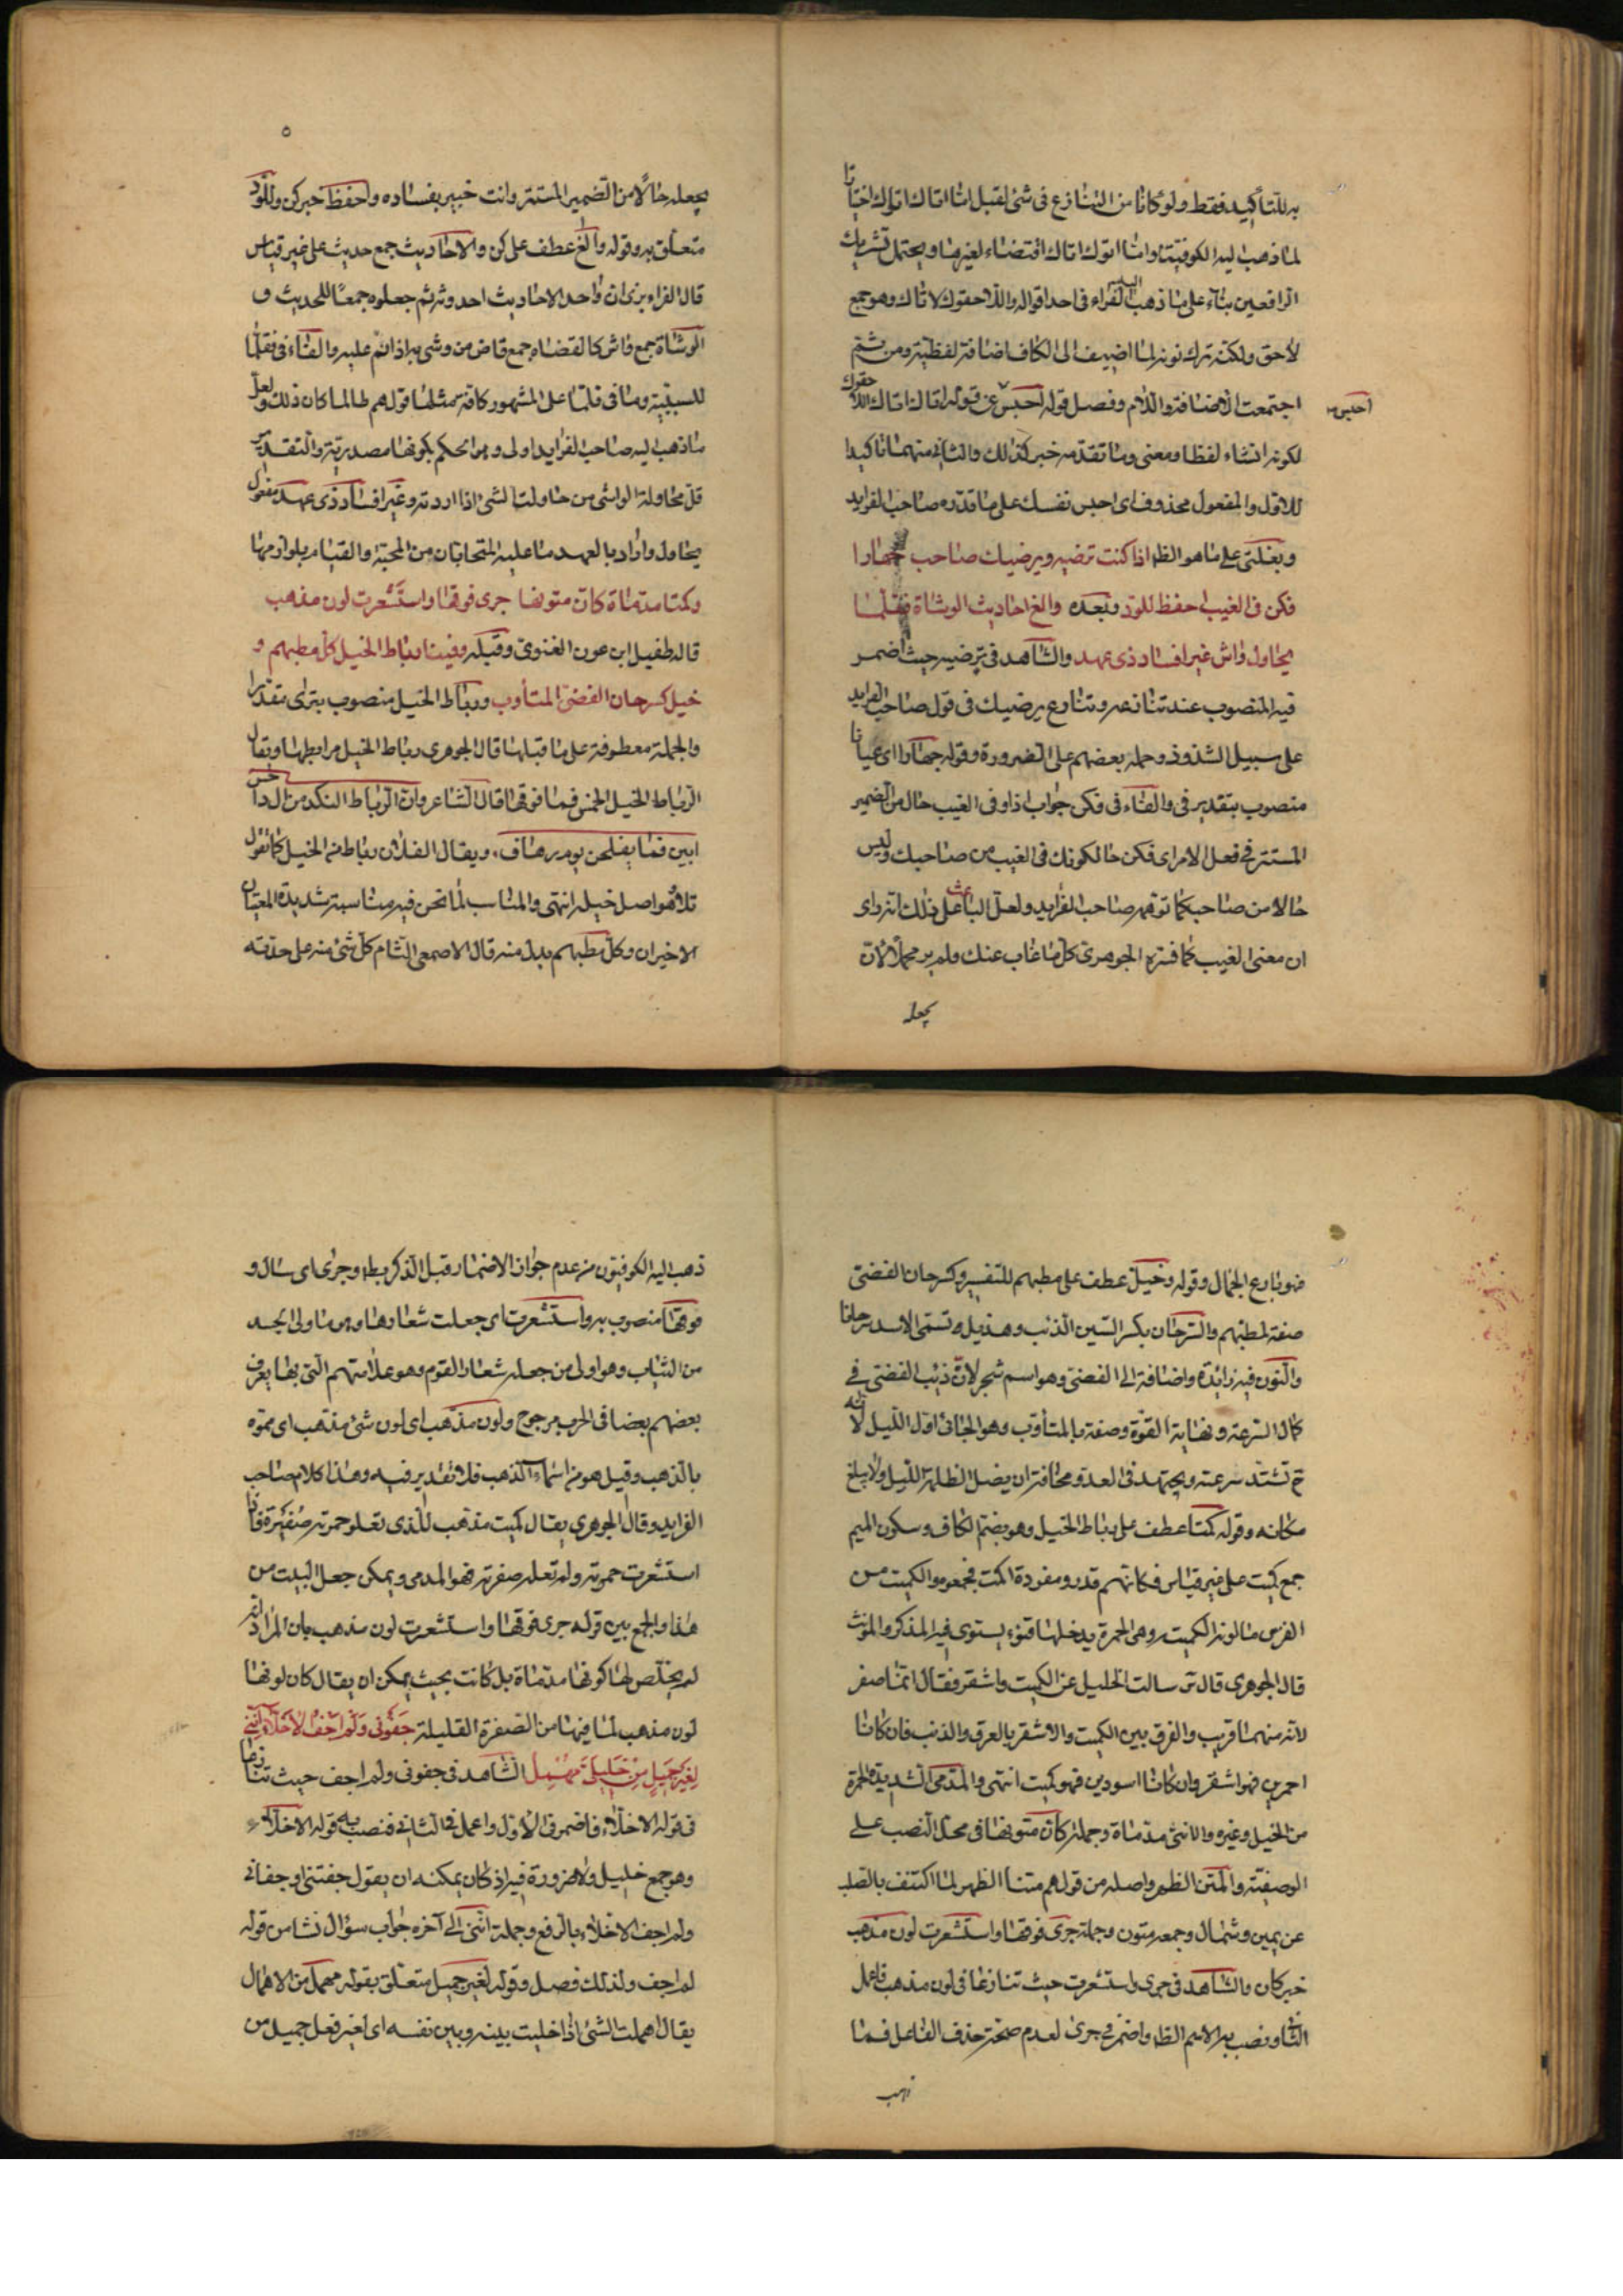 به للتأكيد فقط ولو كانا من التنازع فى شئ لقيل اما اتاك اتوك اختيارا
لما ذهب اليه الكوفيتة واما اتوك اتاك اقتضاء لغيرها ويحتمل تشريك
الرافعين بناء على ما ذهب اليه الفراء فى احد اقواله والا حقوك لاتاك وهو جمع
لاحق ولكنه ترك نونه لما اضيف الى الكاف اضافة لفظية ومن ثم
اجتمعت الاضافة واللام وفصل قوله احبس عن قوله اتاك اتاك اللاحقوك
احبس
لكونه انشاء لفظا ومعنى وما تقدمه خبر كذلك والثانى منهما تاكيدا
للاول والمفعول محذوف اى احبس نفسك على ما قدره صاحب الفرايد
وبغلتى على ما هو الظ اذا كنت ترضيه ويرضيك صاحب جهارا
فكن فى الغيب احفظ للود وبعده والغ احاديث الوشاة فقلما
يحاول واش غير افساد ذى عهد والشاهد فى ترضيه حيث اضمر
فيه المنصوب عند تنازعه وتنازع يرضيك فى قول صاحب الفرايد
على سبيل الشذوذ وحمله بعضهم على الضرورة وقوله جهارا اى عيانا
منصوب بتقدير فى والفاء فى فكن جواب اذا وفى الغيب حال من الضمير
المستتر فى فعل الامر اى فكن حالكونك فى الغيب من صاحبك وليس
حالا من صاحب كما توهمه صاحب الفرايد ولعل الباعث على ذلك انه راى
ان معنى الغيب كما فسره الجوهرى كل ما غاب عنك ولم ير محملا لان
يجعله
٥
يجعله حالا من الضمير المستتر وانت خبير بفساده واحفظ خبر كن وللود
متعلق به وقوله والغ عطف على كن والاحاديث جمع حديث على غير قياس
قال الفراء يرى ان واحد الاحاديث احدوثه ثم جعلوه جمعا للحديث و
الوشاة جمع واش كالقضاه جمع قاض من وشى به اذا نم عليه والفاء فى فقلما
للسببية وما فى قلما على المشهور كافة مثلها قولهم طالما كان ذلك ولعل
ما ذهب اليه صاحب الفرايد اولى وهو الحكم بكونها مصدرية والتقدير
قل محاولة الواشى من حاولت الشئ اذا اردته وغير افساد ذى عهد مفعول
يحاول واراد بالعهد ما عليه المتحابان من المحبة والقيام بلوازمها
وكمتا مدماة كان متونها جرى فوقها واستشعرت لون مذهب
قاله طفيل ابن عون الغنوى وقبله وفينا رباط الخيل كل مطهم و
خيل كسرحان الغضى المتأوب ورباط الخيل منصوب بترى مقدرا
والجملة معطوفة على ما قبلها قال الجوهرى رباط الخيل مرابطها ويقال
الرباط الخيل الخمس فما فوقها قال الشاعر وان الرباط النكد من آل داحس
ابين فما يفلحن يوم رهان ويقال لفلان رباط من الخيل كما تقول
تلاد وهو اصل خيله انتهى والمناسب لما نحن فيه مناسبة شديدة المعنيان
الاخيران وكل مطهم بدل منه قال الاصمعى التام كل شئ منه على حدته
فهو بارع الجمال وقوله وخيل عطف على مطهم للتفسير وكسرحان الغضى
صفة لمطهم والسرحان بكسر السين الذئب وهذيل تسمى الاسد سرحانا
والنون فيه زائدة واضافته الى الغضى وهو اسم شجر لان ذئب الغضى فى
كمال السرعة ونهاية القوة وصفه بالمتأوب وهو الجائى اول الليل لانه
ح تشتد سرعته ويجتهد فى العدو مخافة ان يضل الظلمة الليل ولا يبلغ
مكانه وقوله كمتا عطف على رباط الخيل وهو بضم الكاف وسكون الميم
جمع كميت على غير قياس فكانهم قدروا مفرده اكمت فجمعوه والكميت من
الفرس ما لونه الكميت وهى الحمرة يدخلها قنوء يستوى فيه المذكر والمؤنث
قال الجوهرى قال س سالت الخليل عن الكميت واشقر فقال انما صغر
لانه منهما قريب والفرق بين الكميت والاشقر بالعرف والذنب فان كانا
احمرين فهو اشقر وان كانا اسودين فهو كميت انتهى والمدمى الشديدة الحمرة
من الخيل وغيره والانثى مدماة وجملة كان متونها فى محل النصب على
الوصفية والمتن الظهر واصله من قولهم متنا الظهر لما اكتنف بالصلب
عن يمين وشمال وجمعه متون وجملة جرى فوقها واستشعرت لون مذهب
خبر كان والشاهد فى جرى واستشعرت حيث تنازعا فى لون مذهب فاعمل
الثانى ونصب به الاسم الظ واضمر فى جرى لعدم صحة حذف الفاعل فما
ذهب
ذهب اليه الكوفيون من عدم جواز الاضمار قبل الذكر بط وجرى اى سال و
فوقها منصوب به واستشعرت اى جعلت شعارها وهو ما ولى الجسد
من الثياب وهو اولى من جعله شعار القوم وهو علامتهم التى بها يعرف
بعضهم بعضا فى الحرب مرجوح ولون مذهب اى لون شئ مذهب اى مموه
بالذهب وقيل هو من اسماء الذهب فلا تقدير فيه وهذا كلام صاحب
الفرايد وقال الجوهرى يقال كميت مذهب للذى تعلو حمرته صفرة فاذا
استشعرت حمرته ولم تعله صفرته فهو المدمى ويمكن جعل البيت من
هذا والجمع بين قوله جرى فوقها واستشعرت لون مذهب بان المراد انه
لم يخلص لها كونها مدماة بل كانت بحيث يمكن ان يقال كان لونها
لون مذهب لما فيها من الصفرة القليلة جفونى ولم اجف الاخلاء اننى
لغير جميل من خليلى مهمل الشاهد فى جفونى ولم اجف حيث تنازعا
فى قوله الاخلاء فاضمر فى الاول واعمل فى الثانى فنصب به قوله الاخلاء
وهو جمع خليل ولا ضرورة فيه اذ كان يمكنه ان يقول جفتنى او جفانى
ولم اجف الاخلاء بالرفع وجملة اننى الى آخره جواب سؤال نشا من قوله
لم اجف ولذلك فصل وقوله لغير جميل متعلق بقوله مهمل من الاهمال
يقال اهملت الشئ اذا خليت بينه وبين نفسه اى لغير فعل جميل من